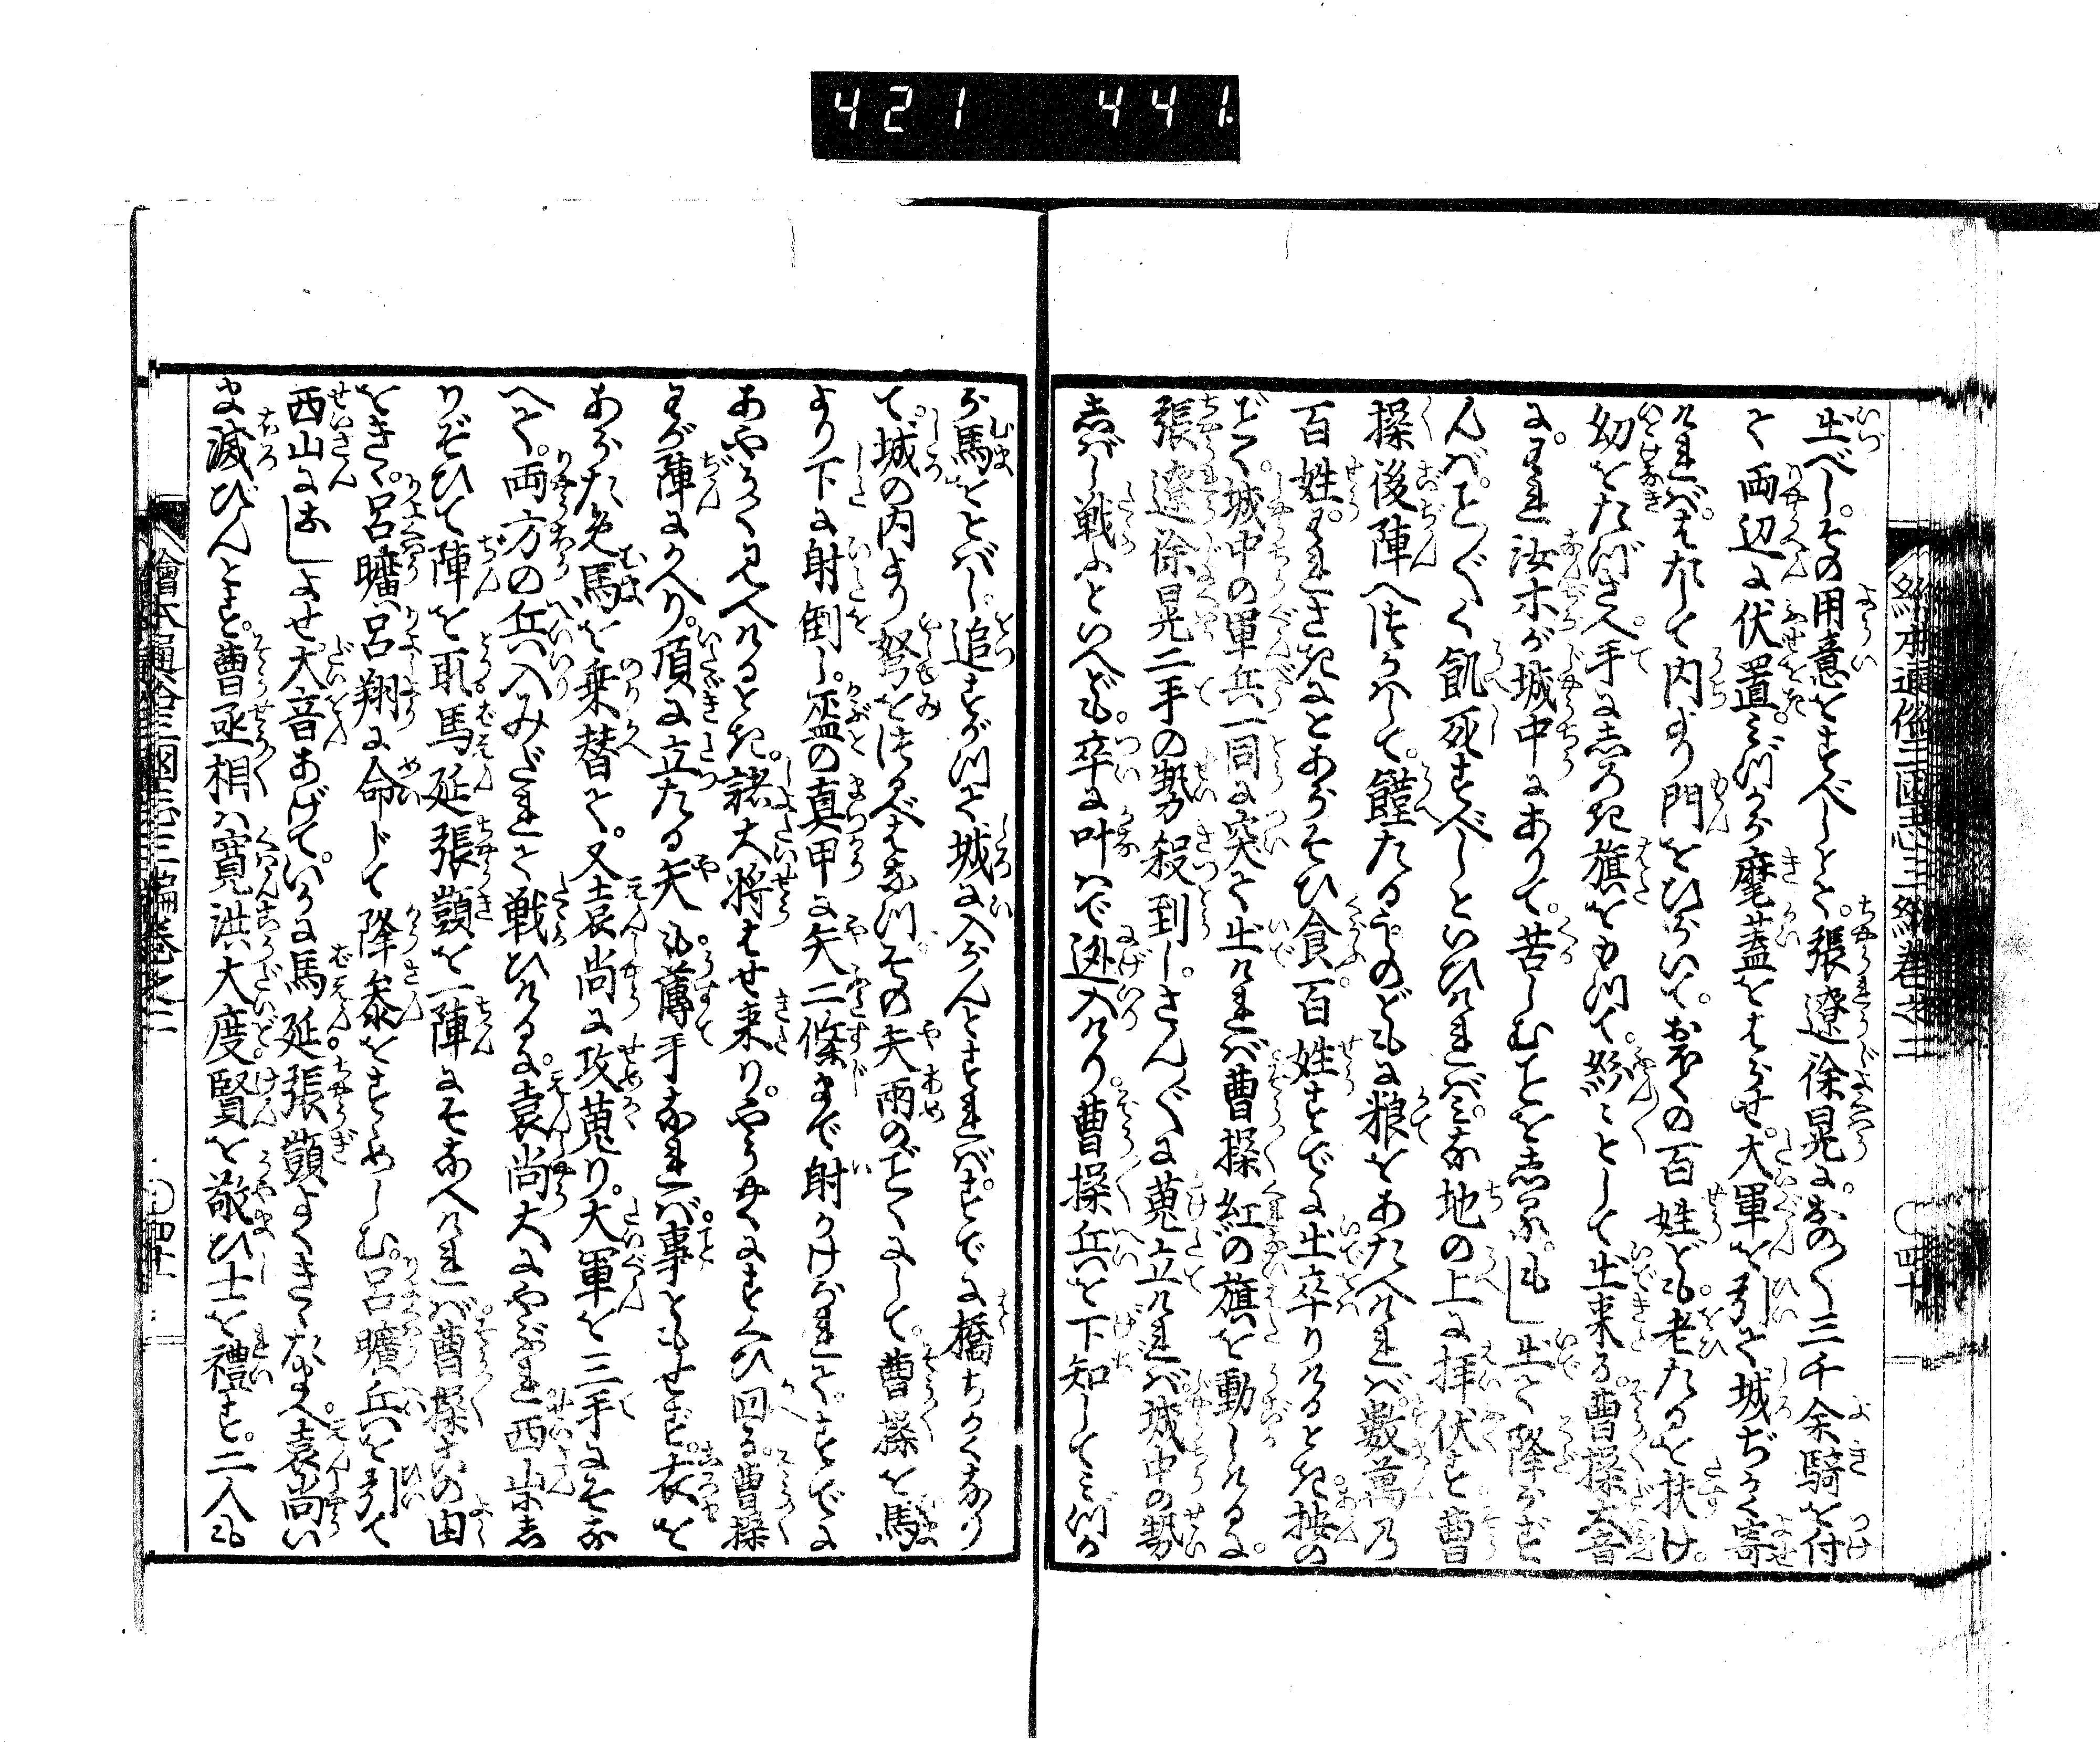 421 441
繪本通俗三國志三編巻之二 〇四十
出べし。その用意をすべしとて。張遼徐晃に。おの〱三千余騎を付
て両辺に伏置。みづから麾蓋をはらせ。大軍を引て城ぢかく寄
ければ。はたして内より門をひらいて。おほくの百姓ども。老たるを扶け。
幼をたづさへ手にしろき旗をもつて。紛〻として出来る。曹操大音
に。われ汝等が城中にありて。苦しむことを知る。もし出て降らず
んば。こと〲く飢死すべしといひければ。みな地の上に拝伏す。曹
操後陣へつかはして。饉たるものどもに粮をあたへければ。数萬の
百姓。われさきにとあらそひ食。百姓すでに出卒りけるとき。按の
ごとく。城中の軍兵一同に突て出ければ。曹操紅の旗を動しけるに。
張遼徐晃二手の勢殺到し。さん〲に蒐立ければ。城中の勢
しばし戦ふといへども。卒に叶はで迯入けり。曹操兵を下知してみづか
ら馬をとばし。追すがつて城に入らんとすれば。すでに橋ちかくなり
て。城の内より弩をつるべはなつ。その矢雨のごとくにして。曹操を馬
より下に射倒し。盔の真甲に矢二條まで射かけられて。すでに
あやうく見へけるとき。諸大将はせ来り。やうやくにすくひ回る。曹操
わが陣にかへり。頂に立たる矢も。薄手なれば。事ともせず。衣を
あらため馬を乗替て。又袁尚に攻蒐り。大軍を三手にそな
へて。両方の兵入みだれて戦ひけるに。袁尚大にやぶれ。西山にし
りぞひて陣を取。馬延張顗を一陣にそなへければ。曹操この由
をきゝ。呂曠呂翔に命じて降参をすゝめしむ。呂曠兵を引て
西山におしよせ。大音あげて。いかに馬延。張顗よくきゝたまへ。袁尚い
ま滅びんとす。曹丞相は寛洪大度。賢を敬ひ士を禮す。二人も
繪本通俗三國志三編巻之二 〇四十